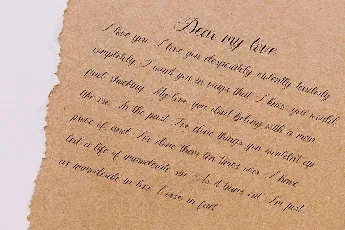 Dear my love
I love you. I love you desperately violently tenderly
completely. I want you in ways that I know you would
find shocking. My love you don't belong with a man
like me. In the past I've done things you wouldn't ap
prove of and I've done them ten times over. I have
led a life of immoderate sin. As it turns out I'm just
as immoderate in love. Worse in fact